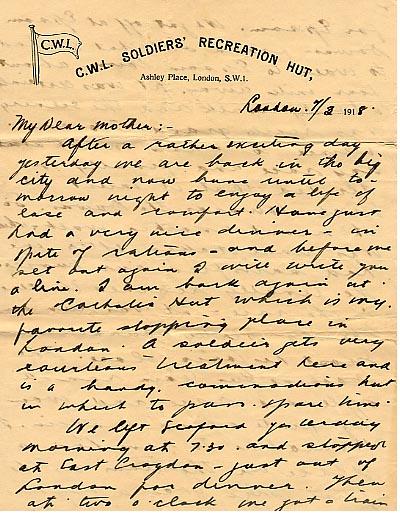 C.W.L.
C.W.L. SOLDIERS' RECREATION HUT,
Ashley Place, London, S.W.1.
London. 7/3 1918.
My Dear Mother:-
After a rather exciting day
yesterday we are back in the big
city and now have until to-
morrow night to enjoy a life of
ease and comfort. Have just
had a very nice dinner - in
spite of rations - and before we
set out again I will write you
a line. I am back again at
the Catholic Hut which is my
favorite stopping place in
London. A soldier gets very
courteous treatment here and
is a handy, commodious hut
in which to pass spare time.
We left Seaford yesterday
morning at 7.30 and stopped
at East Croydon - just out of
London for dinner. Then
at two o'clock we got a train